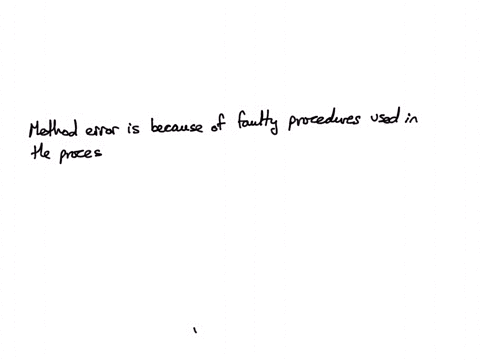 Method error is because of faulty procedures used in
the proces